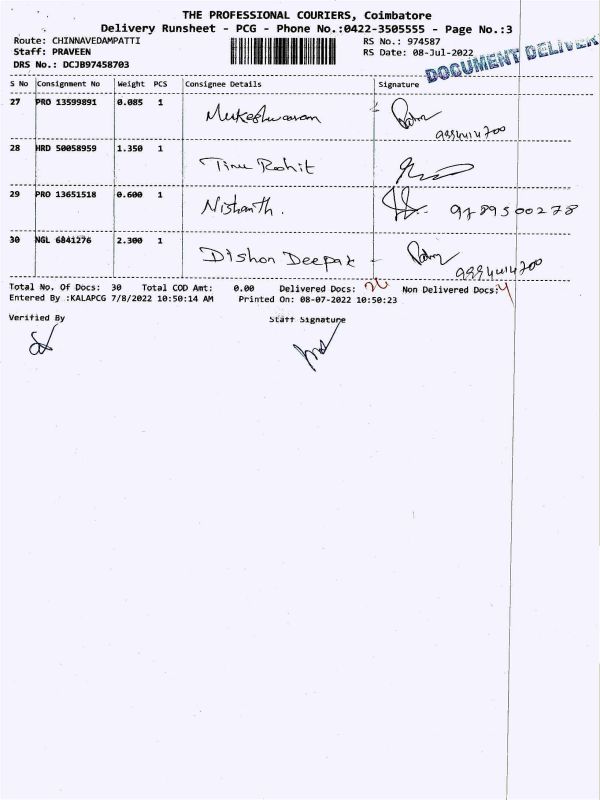 THE PROFESSIONAL COURIERS, Coimbatore
Delivery Runsheet - PCG - Phone No.:0422-3505555 - Page No.:3
Route: CHINNAVEDAMPATTI RS No.: 974587
Staff: PRAVEEN RS Date: 08-Jul-2022
DRS No.: DCJB97458703
DOCUMENT DELIVER
S No Consignment No Weight PCS Consignee Details Signature
27 PRO 13599891 0.085 1 Mukeshwaran
9994414700
28 HRD 50058959 1.350 1 Tinu Rohit
29 PRO 13651518 0.600 1 Nishanth. 9789500278
30 NGL 6841276 2.300 1 Dishon Deepak
9994414700
Total No. Of Docs: 30 Total COD Amt: 0.00 Delivered Docs: 26 Non Delivered Docs: 4
Entered By :KALAPCG 7/8/2022 10:50:14 AM Printed On: 08-07-2022 10:50:23
Verified By Staff Signature